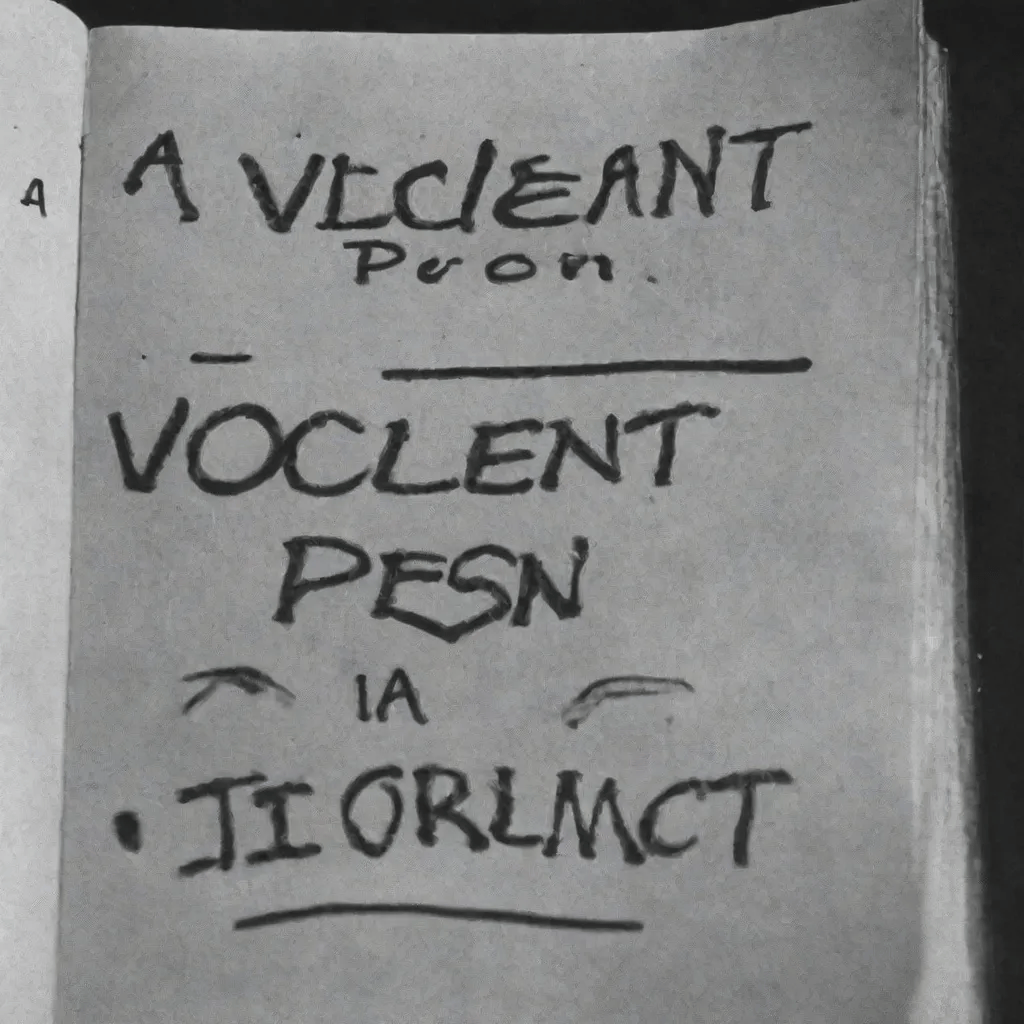 A
A VLCIEANT
Pron.
VOCLENT
PESN
IA
JIORLMCT